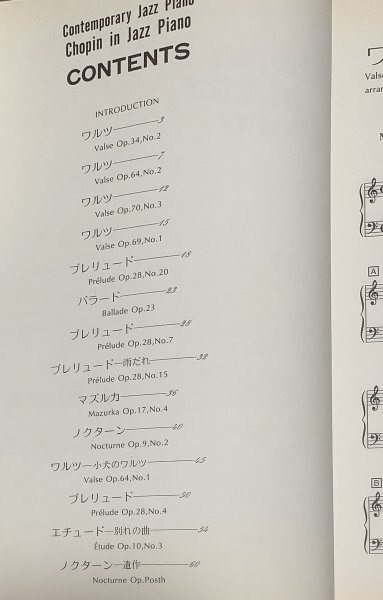 Contemporary Jazz Piano
Chopin in Jazz Piano
CONTENTS
INTRODUCTION
ワルツ 3
Valse Op.34,No.2
ワルツ 7
Valse Op.64,No.2
ワルツ 12
Valse Op.70,No.3
ワルツ 15
Valse Op.69,No.1
プレリュード 18
Prélude Op.28,No.20
バラード 23
Ballade Op.23
プレリュード 28
Prélude Op.28,No.7
プレリュード—雨だれ 32
Prélude Op.28,No.15
マズルカ 36
Mazurka Op.17,No.4
ノクターン 40
Nocturne Op.9,No.2
ワルツ—小犬のワルツ 45
Valse Op.64,No.1
プレリュード 50
Prélude Op.28,No.4
エチュード—別れの曲 54
Étude Op.10,No.3
ノクターン—遺作 60
Nocturne Op.Posth
ワ
Valse
arran
A
B